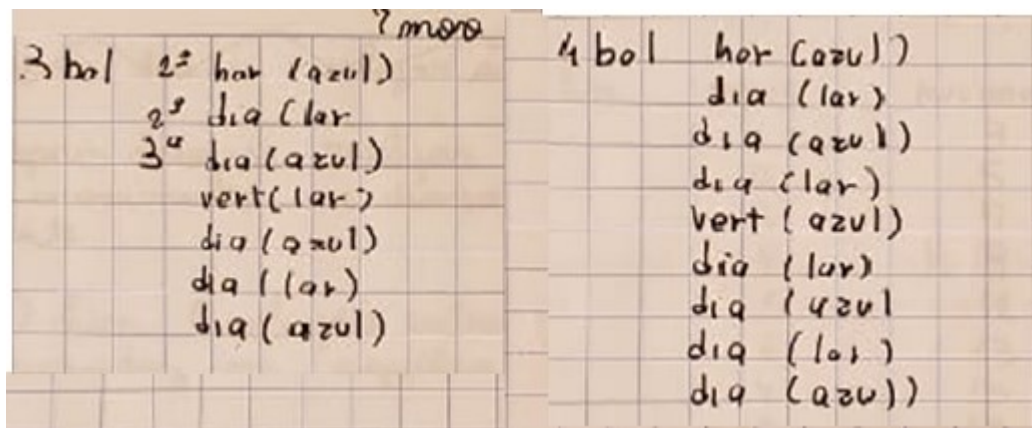 ? moo
3 bol 2ª hor (azul)
2ª dia (lar
3ª dia (azul)
vert (lar)
dia (azul)
dia (lar)
dia (azul)
4 bol hor (azul)
dia (lar)
dia (azul)
dia (lar)
vert (azul)
dia (lar)
dia (azul
dia (lar)
dia (azul)